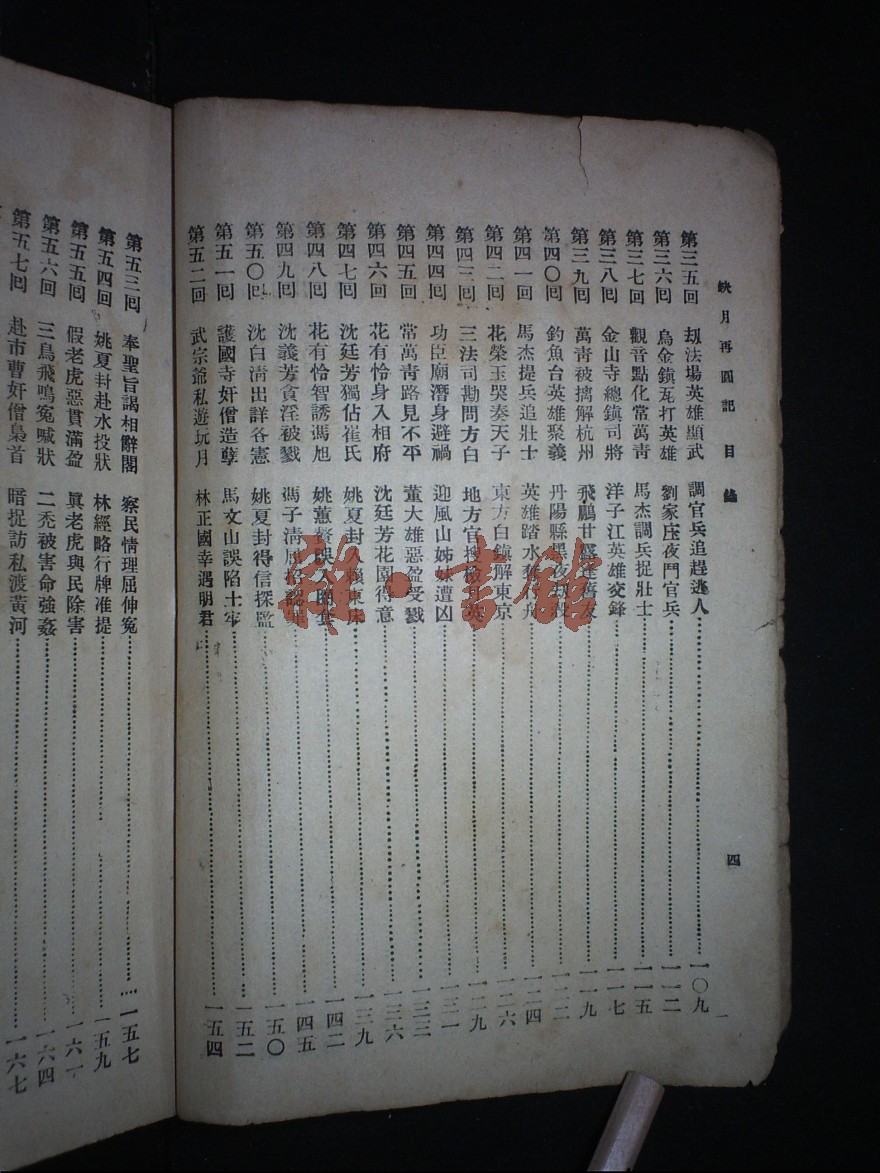 缺月再圓記 目錄
第三五回 刼法場英雄顯武 調官兵追趕逃人 一〇九
第三六回 烏金鎮瓦打英雄 劉家庄夜鬥官兵 一一二
第三七回 觀音點化常萬青 馬杰調兵捉壯士 一一五
第三八回 金山寺總鎮司將 洋子江英雄交鋒 一一七
第三九回 萬青被擒解杭州 飛鵬甘露逢舊友 一一九
第四〇回 釣魚台英雄聚義 丹陽縣黑夜刼獄 一二二
第四一回 馬杰提兵追壯士 英雄踏水奪舟 一二四
第四二回 花榮玉哭奏天子 東方白鎮解東京 一二六
第四三回 三法司勘問方白 地方官搜檢 英 一二九
第四四回 功臣廟潛身避禍 迎風山姊妹遭凶 一三一
第四五回 常萬青路見不平 董大雄惡盈受戮 一三三
第四六回 花有憐身入相府 沈廷芳花園得意 一三六
第四七回 沈廷芳獨佔崔氏 姚夏封入 東床 一三九
第四八回 花有憐智誘馮旭 姚蕙 映入圈套 一四二
第四九回 沈義芳貪淫被戮 馮子清屈招認罪 一四五
第五〇回 沈白清出詳各憲 姚夏封得信探監 一五〇
第五一回 護國寺奸僧造孽 馬文山誤陷土牢 一五二
第五二回 武宗爺私遊玩月 林正國幸遇明君 一五四
四
第五三回 奉聖旨謁相辭閣 察民情理屈伸冤 一五七
第五四回 姚夏封赴水投狀 林經略行牌准提 一五九
第五五回 假老虎惡貫滿盈 眞老虎與民除害 一六一
第五六回 三鳥飛鳴冤喊狀 二禿被害命強姦 一六四
第五七回 赴市曹奸僧梟首 暗捉訪私渡黃河 一六七